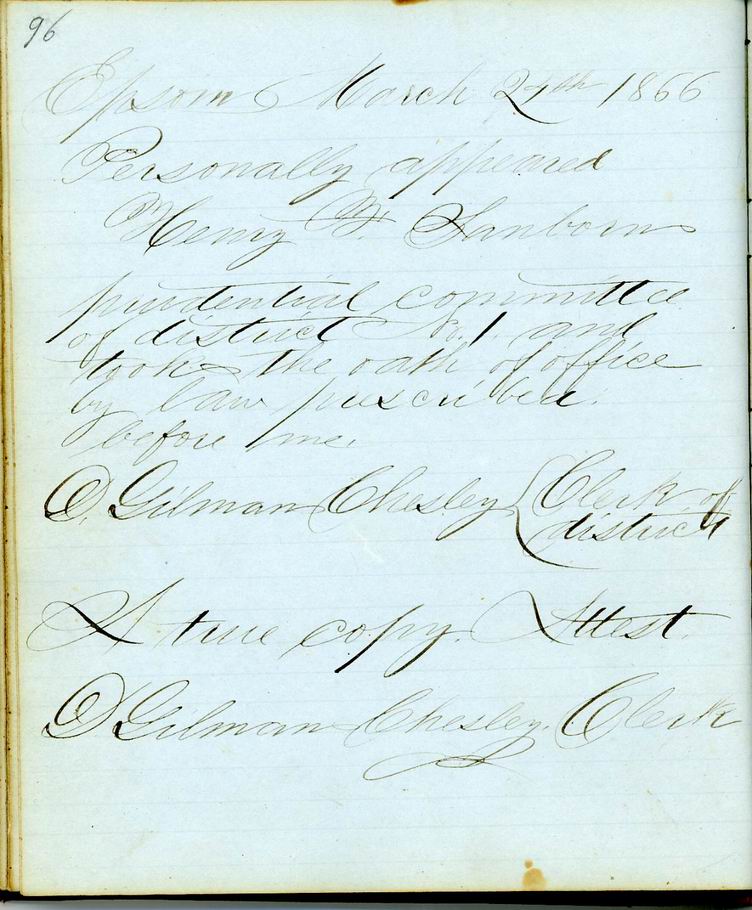 96
Epsom March 24th 1866
Personally appeared
Henry F. Sanborn
prudential committee
of district No. 1. and
took the oath of office
by law prescribed.
before me.
D. Gilman Chesley { Clerk of
district
A true copy. Attest
D Gilman Chesley. Clerk